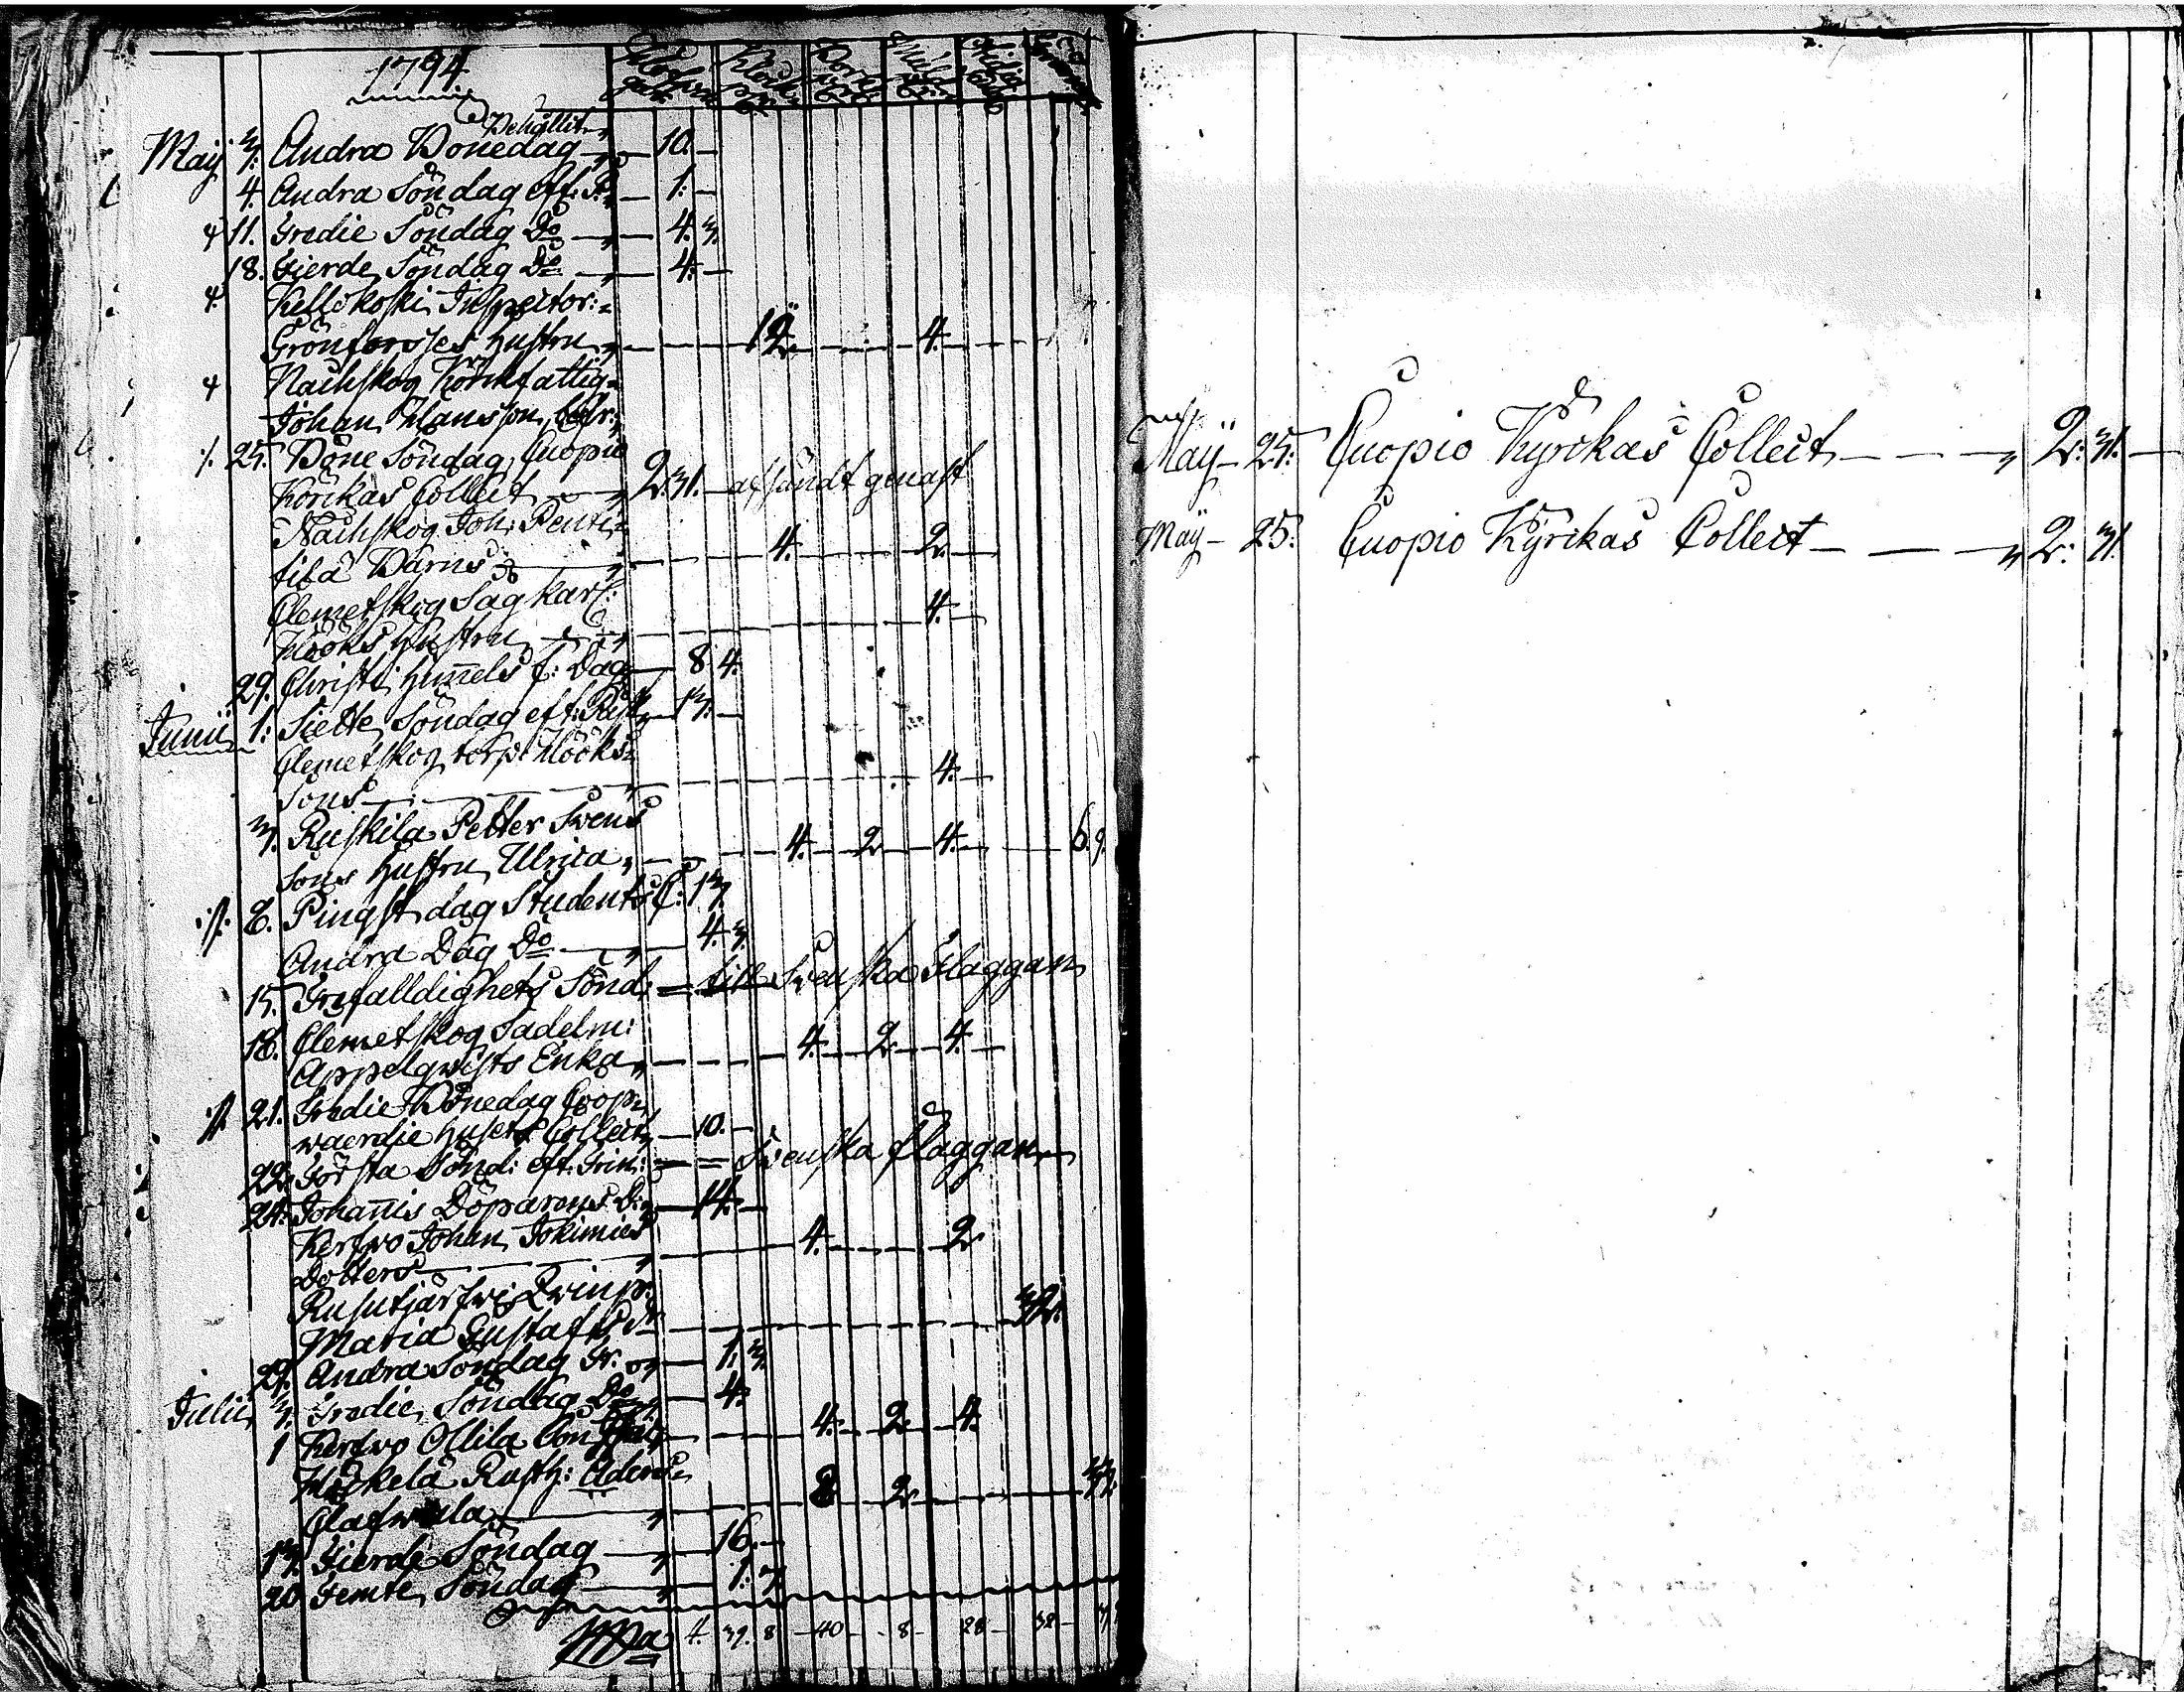 1794
Behållit
Maij 3. Andra Bönedag — 10. —
4. Andra Söndag eft. P. — 1: —
11. Tredie Söndag Do — 4. 3.
18. Fierde Söndag Do — 4. —
Kellokoski Inspector:
Grönforsses hustru — 12 — 4. —
Nackskog Körkfattig
Johan Hansson
25. Böne Söndag Cuopio
Körikas Collect — 2: 31. — afsändt genast
Nackskog Joh: Pentti
tila Barns — 4. — 2. —
Clemetskog Sag karl:
Hööks hustru — 4. —
29. Christi Himels f: Dag — 8 4.
Junii 1: Siette Söndag eft: Påsk — 13: —
Clemetskog torp: Hööks
Sons — 4. —
3. Ruskila Petter Svens
Sons hustru Ulrica — 4. — 2 — 4. — 6. 9.
8. Pingst dag Students C: 13.
Andra Dag Do — 4. 3.
15. Trefalldighets Sönd: = till Svenska Flaggan
18. Clemetskog Sadelm:
Appelqvists Enka — 4. — 2 — 4. —
21. Tredie Bönedag Coop
waerdie husets Collect — 10. —
22. Första Sönd: eft. Trin: = = Svenska flaggan
24. Johannis Döparens D: — 14. —
Kerfvo Johan Jokimies
Dotters — 4. — 2
Rusutjärfvi Qvinsp:
Maria Gustafs Dr — 32.
29. Andra Söndag Tr. — 1: 3.
Julii 3. Tredie Söndag Do — 4.
1 Kerfvo Ollila — 4. — 2 — 4.
Häckelä Rusth:
Olafwila — 8 — 2 —
13. Fierde Söndag — 16. —
20 Femte Söndag — 1: 7.
Sma 4. 39. 8 — 40 — 8 — 28 — 32 —
Maij — 25: Cuopio Kyrckas Collect — — — 2: 31. —
Maij — 25: Cuopio Kyrckas Collect — — — 2: 31.